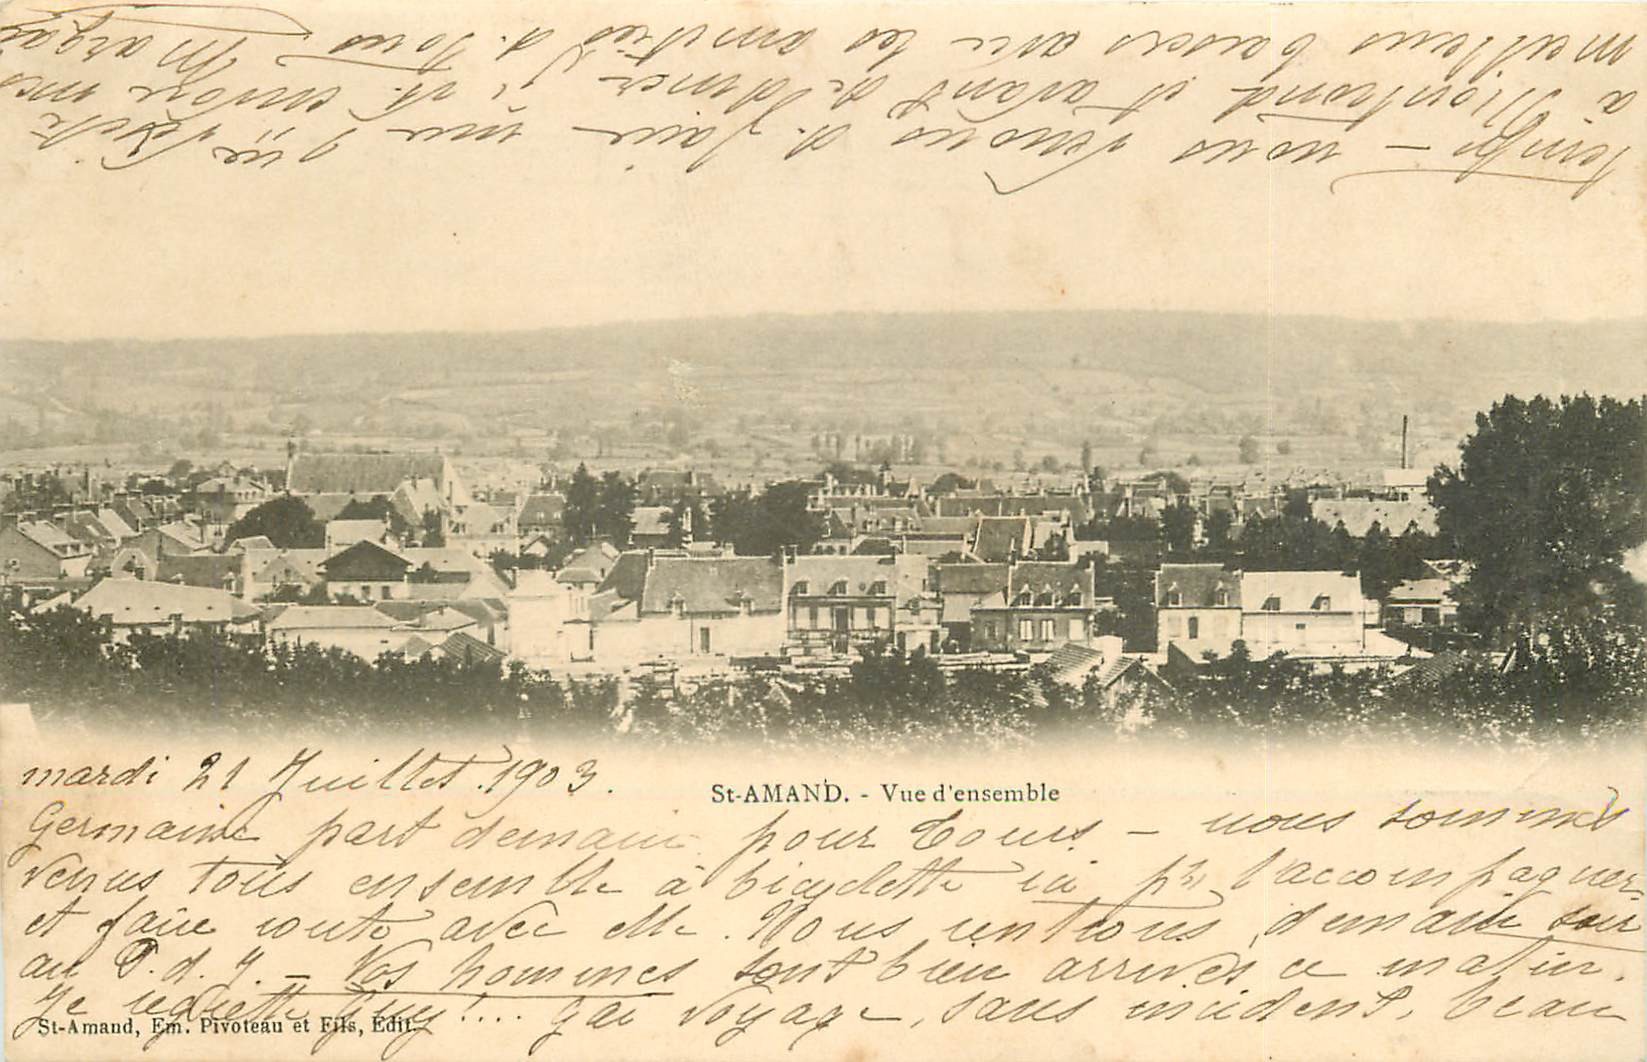 St-AMAND. - Vue d'ensemble
mardi 21 Juillet 1903.
Germaine part demain pour Tours - nous sommes
venus tous ensemble à bicyclette ici pr l'accompagner
et faire route avec elle. Nous rentrons demain soir
au P. d. J. - Vos hommes sont bien arrivés ce matin.
Je regrette Guy!... gai voyage, sans incident, beau
St-Amand, Em. Pivoteau et Fils, Édit.
temps - nous venons d. faire une
à Montrond et avant de dîner j' t. envoie mes
meilleurs baisers avec les amitiés d. tous